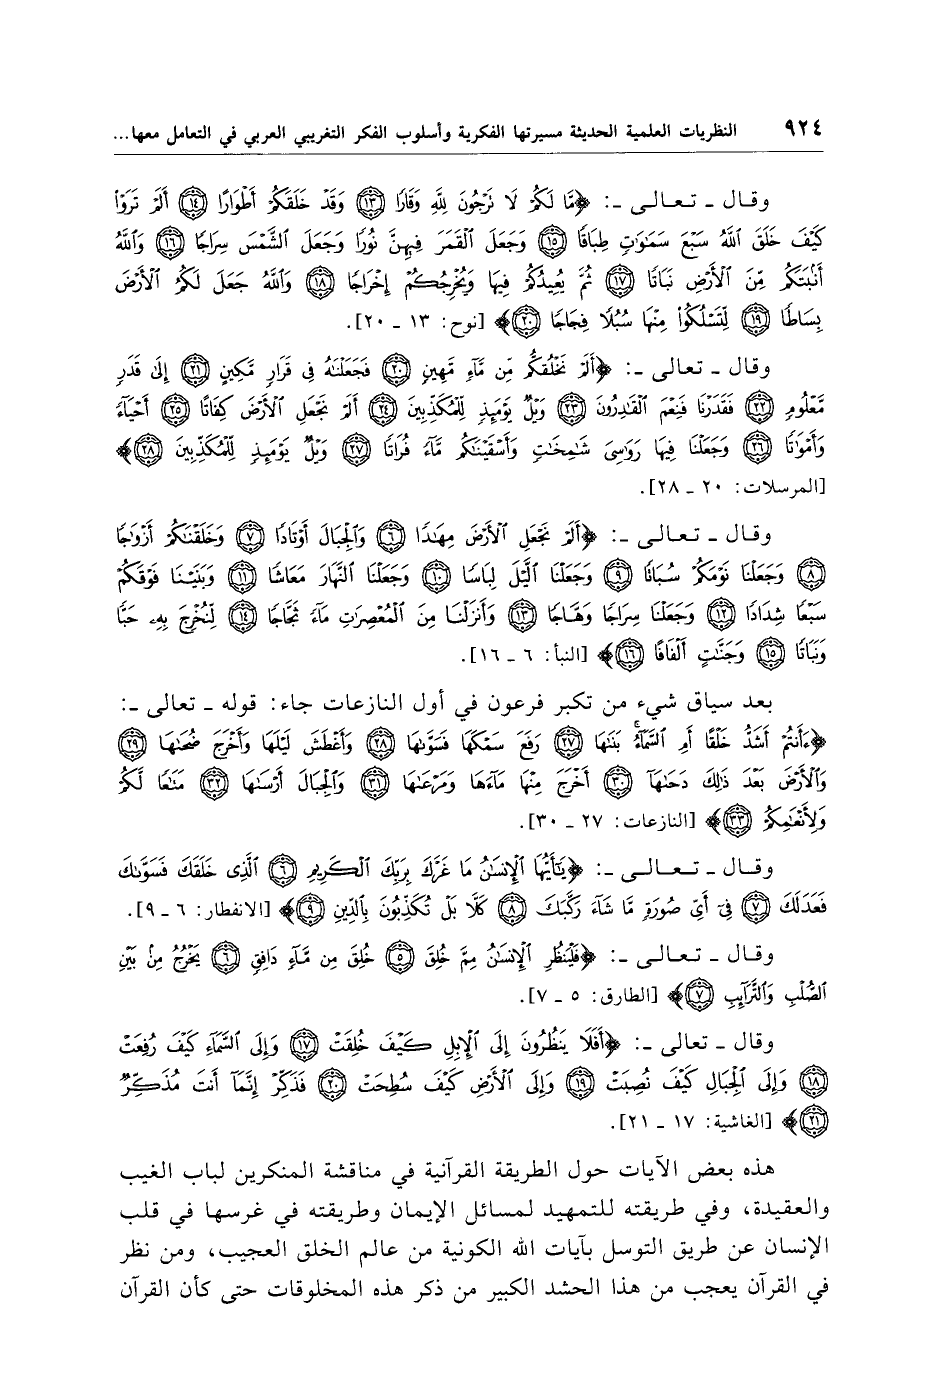 ٩٢٤ النظريات العلمية الحديثة مسيرتها الفكرية وأسلوب الفكر التغريبي العربي في التعامل معها...
وقال ـ تعالى ـ: ﴿مَّا لَكُمْ لَا تَرْجُونَ لِلَّهِ وَقَارًا ١٣ وَقَدْ خَلَقَكُمْ أَطْوَارًا ١٤ أَلَمْ تَرَوْا۟
كَيْفَ خَلَقَ ٱللَّهُ سَبْعَ سَمَٰوَٰتٍ طِبَاقًا ١٥ وَجَعَلَ ٱلْقَمَرَ فِيهِنَّ نُورًا وَجَعَلَ ٱلشَّمْسَ سِرَاجًا ١٦ وَٱللَّهُ
أَنۢبَتَكُم مِّنَ ٱلْأَرْضِ نَبَاتًا ١٧ ثُمَّ يُعِيدُكُمْ فِيهَا وَيُخْرِجُكُمْ إِخْرَاجًا ١٨ وَٱللَّهُ جَعَلَ لَكُمُ ٱلْأَرْضَ
بِسَاطًا ١٩ لِّتَسْلُكُوا۟ مِنْهَا سُبُلًا فِجَاجًا ٢٠﴾ [نوح: ١٣ ـ ٢٠].
وقال ـ تعالى ـ: ﴿أَلَمْ نَخْلُقكُّم مِّن مَّآءٍ مَّهِينٍ ٢٠ فَجَعَلْنَٰهُ فِى قَرَارٍ مَّكِينٍ ٢١ إِلَىٰ قَدَرٍ
مَّعْلُومٍ ٢٢ فَقَدَرْنَا فَنِعْمَ ٱلْقَٰدِرُونَ ٢٣ وَيْلٌ يَوْمَئِذٍ لِّلْمُكَذِّبِينَ ٢٤ أَلَمْ نَجْعَلِ ٱلْأَرْضَ كِفَاتًا ٢٥ أَحْيَآءً
وَأَمْوَٰتًا ٢٦ وَجَعَلْنَا فِيهَا رَوَٰسِىَ شَٰمِخَٰتٍ وَأَسْقَيْنَٰكُم مَّآءً فُرَاتًا ٢٧ وَيْلٌ يَوْمَئِذٍ لِّلْمُكَذِّبِينَ ٢٨﴾
[المرسلات: ٢٠ ـ ٢٨].
وقال ـ تعالى ـ: ﴿أَلَمْ نَجْعَلِ ٱلْأَرْضَ مِهَٰدًا ٦ وَٱلْجِبَالَ أَوْتَادًا ٧ وَخَلَقْنَٰكُمْ أَزْوَٰجًا
٨ وَجَعَلْنَا نَوْمَكُمْ سُبَاتًا ٩ وَجَعَلْنَا ٱلَّيْلَ لِبَاسًا ١٠ وَجَعَلْنَا ٱلنَّهَارَ مَعَاشًا ١١ وَبَنَيْنَا فَوْقَكُمْ
سَبْعًا شِدَادًا ١٢ وَجَعَلْنَا سِرَاجًا وَهَّاجًا ١٣ وَأَنزَلْنَا مِنَ ٱلْمُعْصِرَٰتِ مَآءً ثَجَّاجًا ١٤ لِّنُخْرِجَ بِهِۦ حَبًّا
وَنَبَاتًا ١٥ وَجَنَّٰتٍ أَلْفَافًا ١٦﴾ [النبأ: ٦ ـ ١٦].
بعد سياق شيء من تكبر فرعون في أول النازعات جاء: قوله ـ تعالى ـ:
﴿ءَأَنتُمْ أَشَدُّ خَلْقًا أَمِ ٱلسَّمَآءُ ۚ بَنَىٰهَا ٢٧ رَفَعَ سَمْكَهَا فَسَوَّىٰهَا ٢٨ وَأَغْطَشَ لَيْلَهَا وَأَخْرَجَ ضُحَىٰهَا ٢٩
وَٱلْأَرْضَ بَعْدَ ذَٰلِكَ دَحَىٰهَآ ٣٠ أَخْرَجَ مِنْهَا مَآءَهَا وَمَرْعَىٰهَا ٣١ وَٱلْجِبَالَ أَرْسَىٰهَا ٣٢ مَتَٰعًا لَّكُمْ
وَلِأَنْعَٰمِكُمْ ٣٣﴾ [النازعات: ٢٧ ـ ٣٠].
وقال ـ تعالى ـ: ﴿يَٰٓأَيُّهَا ٱلْإِنسَٰنُ مَا غَرَّكَ بِرَبِّكَ ٱلْكَرِيمِ ٦ ٱلَّذِى خَلَقَكَ فَسَوَّىٰكَ
فَعَدَلَكَ ٧ فِىٓ أَىِّ صُورَةٍ مَّا شَآءَ رَكَّبَكَ ٨ كَلَّا بَلْ تُكَذِّبُونَ بِٱلدِّينِ ٩﴾ [الانفطار: ٦ ـ ٩].
وقال ـ تعالى ـ: ﴿فَلْيَنظُرِ ٱلْإِنسَٰنُ مِمَّ خُلِقَ ٥ خُلِقَ مِن مَّآءٍ دَافِقٍ ٦ يَخْرُجُ مِنۢ بَيْنِ
ٱلصُّلْبِ وَٱلتَّرَآئِبِ ٧﴾ [الطارق: ٥ ـ ٧].
وقال ـ تعالى ـ: ﴿أَفَلَا يَنظُرُونَ إِلَى ٱلْإِبِلِ كَيْفَ خُلِقَتْ ١٧ وَإِلَى ٱلسَّمَآءِ كَيْفَ رُفِعَتْ
١٨ وَإِلَى ٱلْجِبَالِ كَيْفَ نُصِبَتْ ١٩ وَإِلَى ٱلْأَرْضِ كَيْفَ سُطِحَتْ ٢٠ فَذَكِّرْ إِنَّمَآ أَنتَ مُذَكِّرٌ
٢١﴾ [الغاشية: ١٧ ـ ٢١].
هذه بعض الآيات حول الطريقة القرآنية في مناقشة المنكرين لباب الغيب
والعقيدة، وفي طريقته للتمهيد لمسائل الإيمان وطريقته في غرسها في قلب
الإنسان عن طريق التوسل بآيات الله الكونية من عالم الخلق العجيب، ومن نظر
في القرآن يعجب من هذا الحشد الكبير من ذكر هذه المخلوقات حتى كأن القرآن